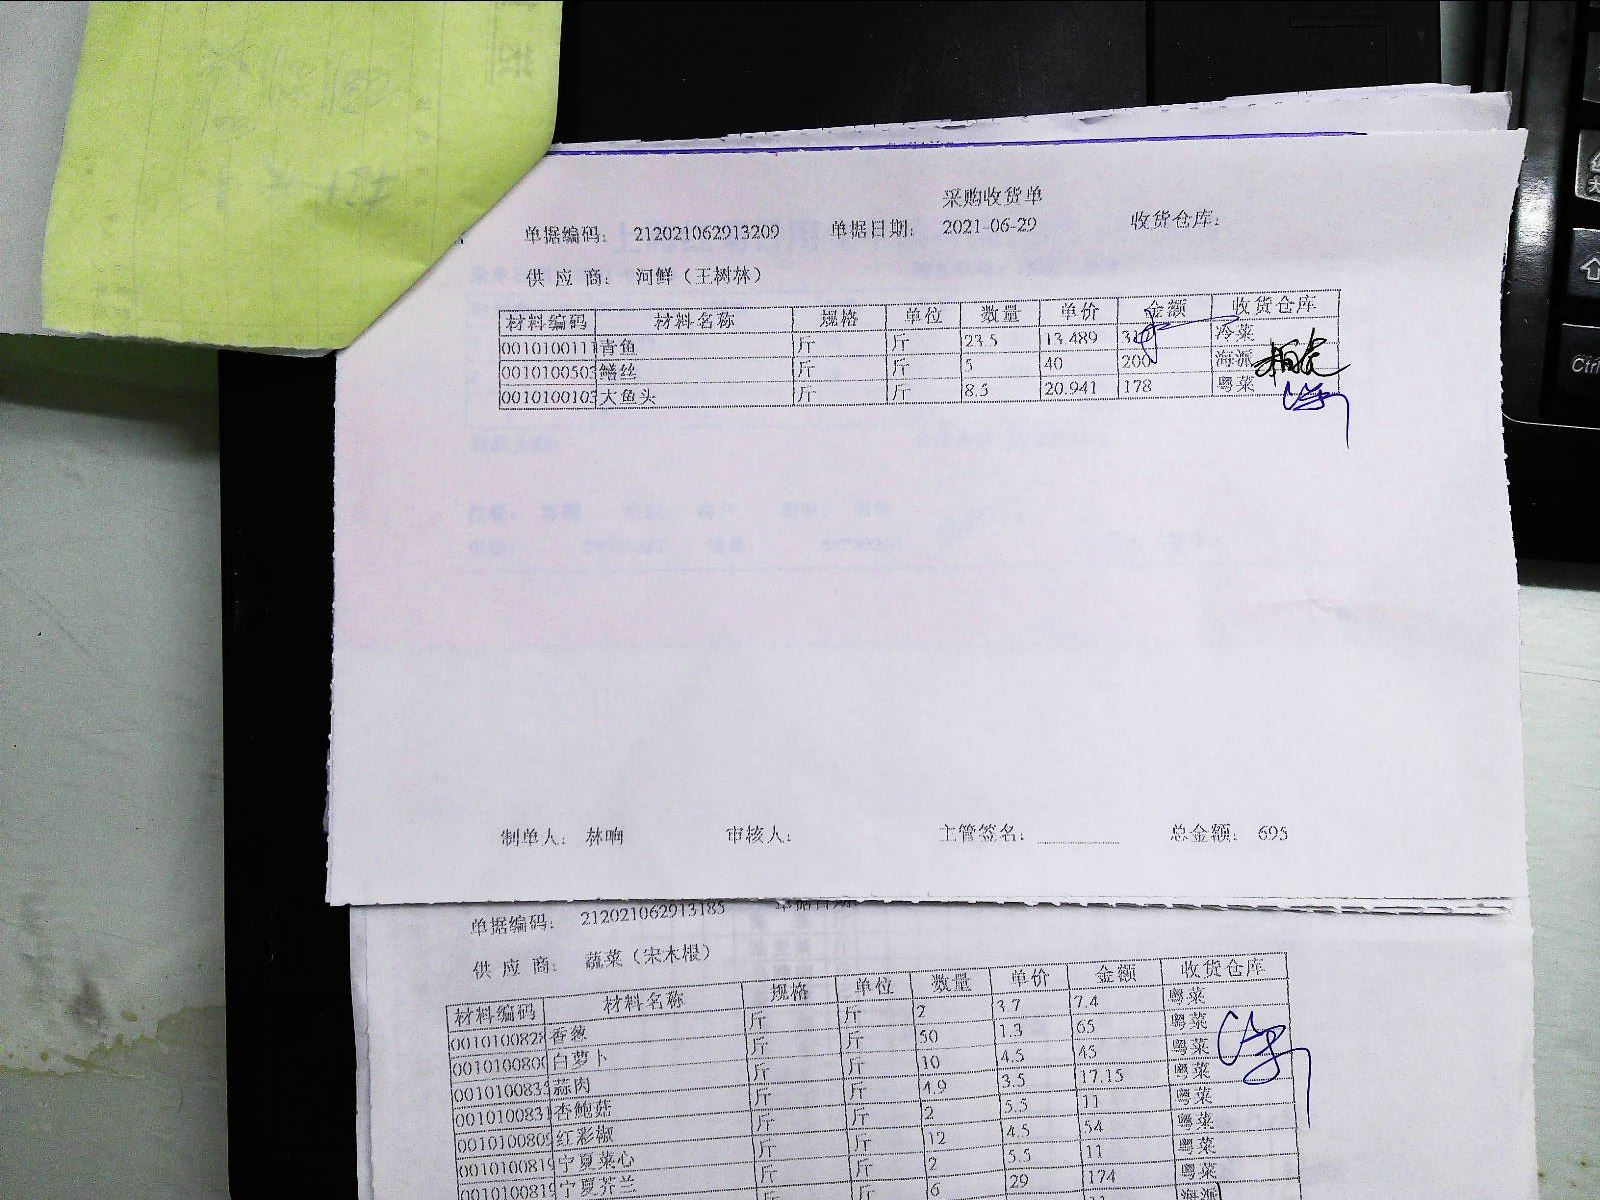 采购收货单
单据编码: 212021062913209 单据日期: 2021-06-29 收货仓库:
供 应 商: 河鲜(王树林)
材料编码 材料名称 规格 单位 数量 单价 金额 收货仓库
0010100111 青鱼 斤 斤 23.5 13.489 冷菜
0010100503 鳝丝 斤 斤 5 40 200 海派
0010100103 大鱼头 斤 斤 8.5 20.941 178 粤菜
制单人: 林响 审核人: 主管签名: 总金额: 695
单据编码: 212021062913185 单据日期
供 应 商: 蔬菜(宋木根)
材料编码 材料名称 规格 单位 数量 单价 金额 收货仓库
001010082 香葱 斤 斤 2 3.7 7.4 粤菜
001010080 白萝卜 斤 斤 50 1.3 65 粤菜
001010083 蒜肉 斤 斤 10 4.5 45 粤菜
001010083 杏鲍菇 斤 斤 4.9 3.5 17.15 粤菜
001010080 红彩椒 斤 斤 2 5.5 11 粤菜
001010081 宁夏菜心 斤 斤 12 4.5 54 粤菜
001010081 宁夏芥兰 斤 斤 2 5.5 11 粤菜
斤 斤 6 29 174 粤菜
海派
Ctrl